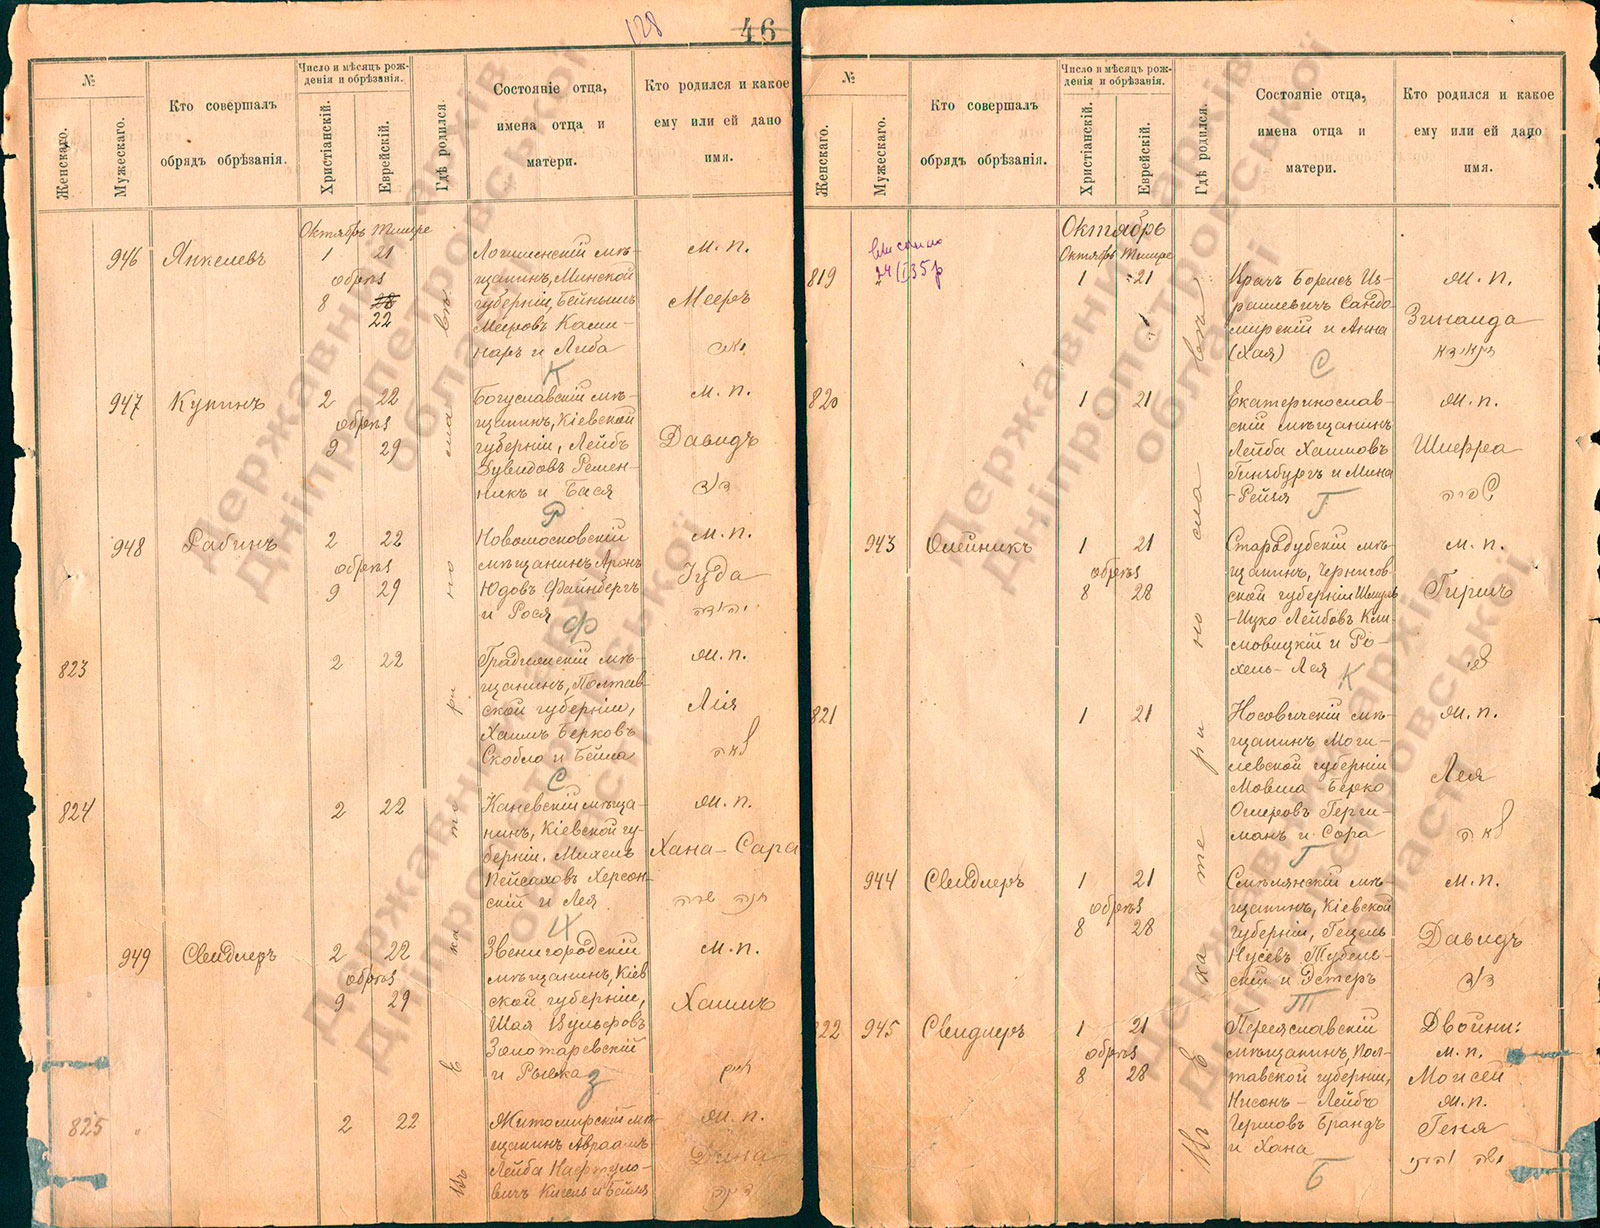 128
46
№
Женскаго.
Мужескаго.
Кто совершалъ
обрядъ обрѣзанія.
Число и мѣсяцъ рож-
денія и обрѣзанія.
Христіанскій.
Еврейскій.
Гдѣ родился.
Состояніе отца,
имена отца и
матери.
Кто родился и какое
ему или ей дано
имя.
Октябрь Тишре
946 Янкелевъ 1 21
обрѣз
8 28
22
Логишенскій мѣ-
щанинъ, Минской
губерніи, Бейнышъ
Мееровъ Касши-
наръ и Либа
К
м. п.
Мееръ
מאיר
947 Купинъ 2 22
обрѣз
9 29
Богуславскій мѣ-
щанинъ, Кіевской
губерніи, Лейбъ
Дувидовъ Ремен-
никъ и Бася
Р
м. п.
Давидъ
דוד
948 Рабинъ 2 22
обрѣз
9 29
Новомосковскій
мѣщанинъ Аронъ
Юдовъ Файнбергъ
и Рося
Ф
м. п.
Іуда
יהודה
823 2 22
Градижскій мѣ-
щанинъ, Полтав-
ской губерніи,
Хаимъ Берковъ
Скобло и Бейла
С
м. п.
Лія
לאה
824 2 22
Каневскій мѣща-
нинъ, Кіевской гу-
берніи. Михель
Пейсаховъ Херсон-
скій и Лея
Х
м. п.
Хана-Сара
חנה שרה
949 Свидлеръ 2 22
обрѣз
9 29
Звенигородскій
мѣщанинъ, Кіев
ской губерніи,
Шая Вульфовъ
Золотаревскій
и Рывка
З
м. п.
Хаимъ
חיים
825 2 22
Житомирскій мѣ-
щанинъ Авраамъ
Лейба Нафтуло-
вичъ Кигель и Бейля
м. п.
Дина
דינה
Въ Екатеринославѣ
№
Женскаго.
Мужескаго.
Кто совершалъ
обрядъ обрѣзанія.
Число и мѣсяцъ рож-
денія и обрѣзанія.
Христіанскій.
Еврейскій.
Гдѣ родился.
Состояніе отца,
имена отца и
матери.
Кто родился и какое
ему или ей дано
имя.
Октябрь
Октябрь Тишре
819 24/I 35р 1 21
Врачъ Борисъ Из-
раилевичъ Сандо-
мирскій и Анна
(Хая)
С
м. п.
Зинаида
820 1 21
Екатеринослав-
скій мѣщанинъ
Лейба Хаимовъ
Гинзбургъ и Мина
-Рейзя
Г
м. п.
Шифра
שפרה
943 Олейникъ 1 21
обрѣз
8 28
Стародубскій мѣ-
щанинъ, Чернигов-
ской губерніи Шмуль
-Ицко Лейбовъ Кли-
мовицкій и Ро-
хель-Лея
К
м. п.
Гиршъ
צבי
821 1 21
Носовичскій мѣ-
щанинъ Моги-
левской губерніи
Мовша Берко
Ошеровъ Герш-
манъ и Сора
Г
м. п.
Лея
לאה
944 Свидлеръ 1 21
обрѣз
8 28
Смѣлянскій мѣ-
щанинъ, Кіевской
губерніи, Гецель
Нусевъ Тубель-
скій и Эстеръ
Т
м. п.
Давидъ
דוד
822 945 Свидлеръ 1 21
обрѣз
8 28
Переяславскій
мѣщанинъ, Пол-
тавской губерніи,
Нисонъ-Лейбъ
Гершовъ Брандъ
и Хана
Б
Двойни:
м. п.
Моисей
м. п.
Геня
Въ Екатеринославѣ
Державний архів
Дніпропетровської
області